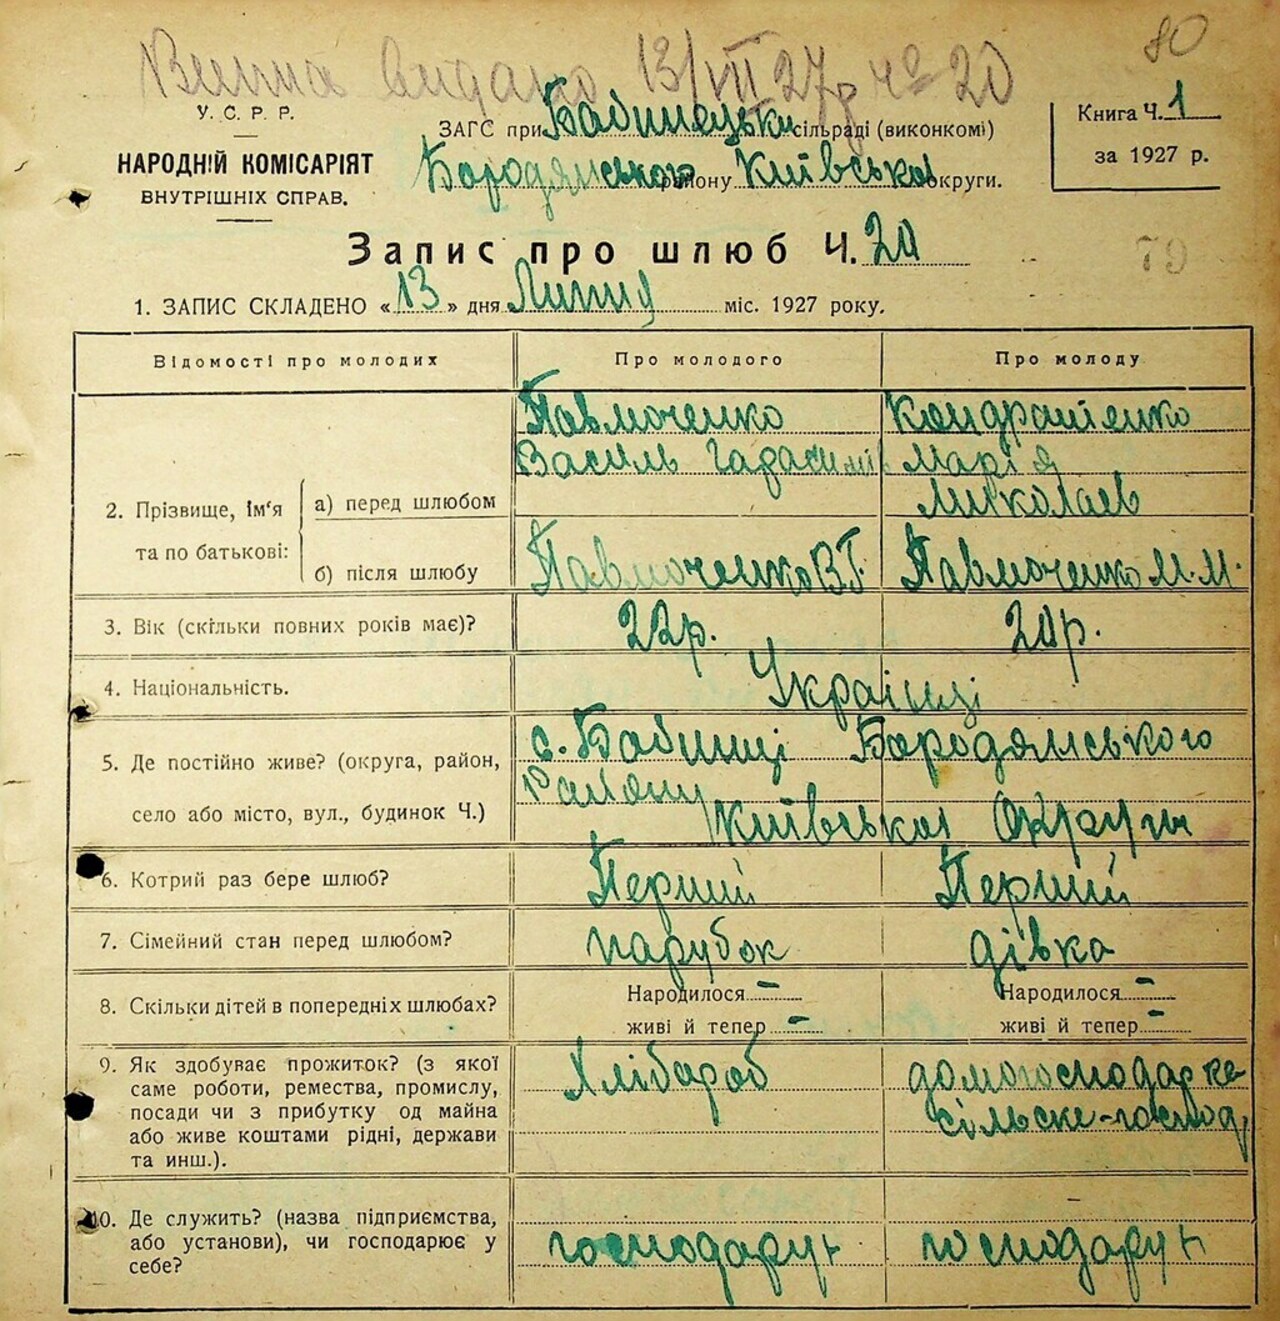 Випис видано 13/VII 27р № 20
80
У. С. Р. Р.
НАРОДНІЙ КОМІСАРІЯТ
ВНУТРІШНІХ СПРАВ.
ЗАГС при Бабинецькій сільраді (виконкомі)
Бородянського району Київської округи.
Книга Ч. 1
за 1927 р.
Запис про шлюб Ч. 20
79
1. ЗАПИС СКЛАДЕНО «13» дня Липня міс. 1927 року.
Відомості про молодих Про молодого Про молоду
2. Прізвище, ім‘я та по батькові:
а) перед шлюбом
Павлюченко Кондратенко
Василь Гарасимів Марія
Миколаєв
б) після шлюбу Павлюченко В.Г. Павлюченко М.М.
3. Вік (скільки повних років має)? 22р. 20р.
4. Національність. Українці
5. Де постійно живе? (округа, район,
село або місто, вул., будинок Ч.)
с. Бабинці Бородянського
Району
Київської Округи
6. Котрий раз бере шлюб? Перший Перший
7. Сімейний стан перед шлюбом? парубок дівка
8. Скільки дітей в попередніх шлюбах? Народилося – Народилося –
живі й тепер – живі й тепер –
9. Як здобуває прожиток? (з якої
саме роботи, ремества, промислу,
посади чи з прибутку од майна
або живе коштами рідні, держави
та инш.).
Хлібороб домогосподарка
сільське-господ
10. Де служить? (назва підприємства,
або установи), чи господарює у
себе?
господарує господарує